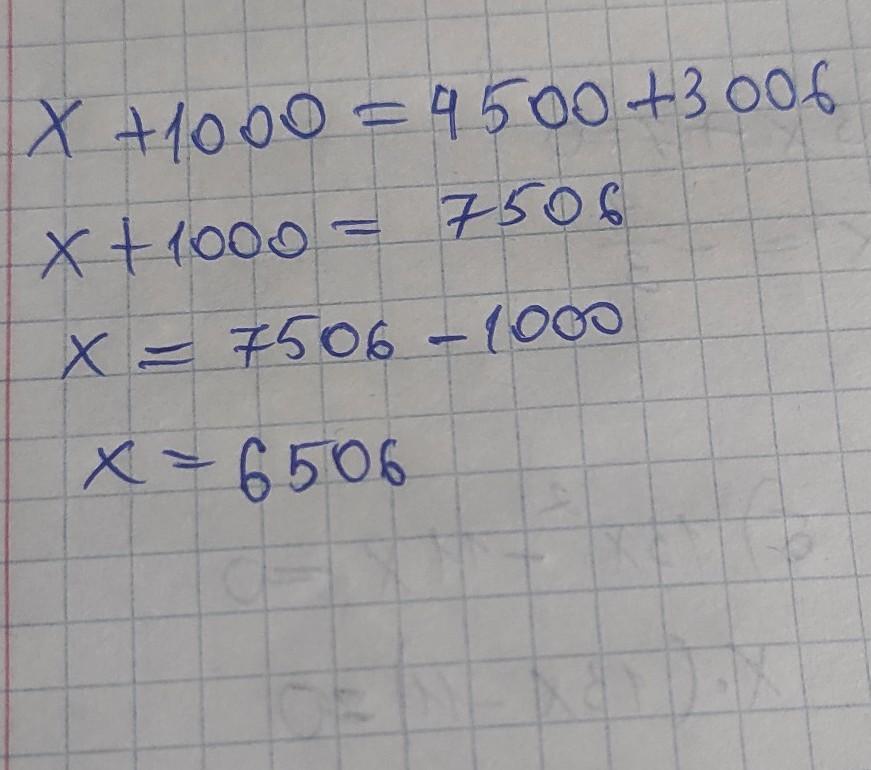 x + 1000 = 4500 + 3006
x + 1000 = 7506
x = 7506 - 1000
x = 6506